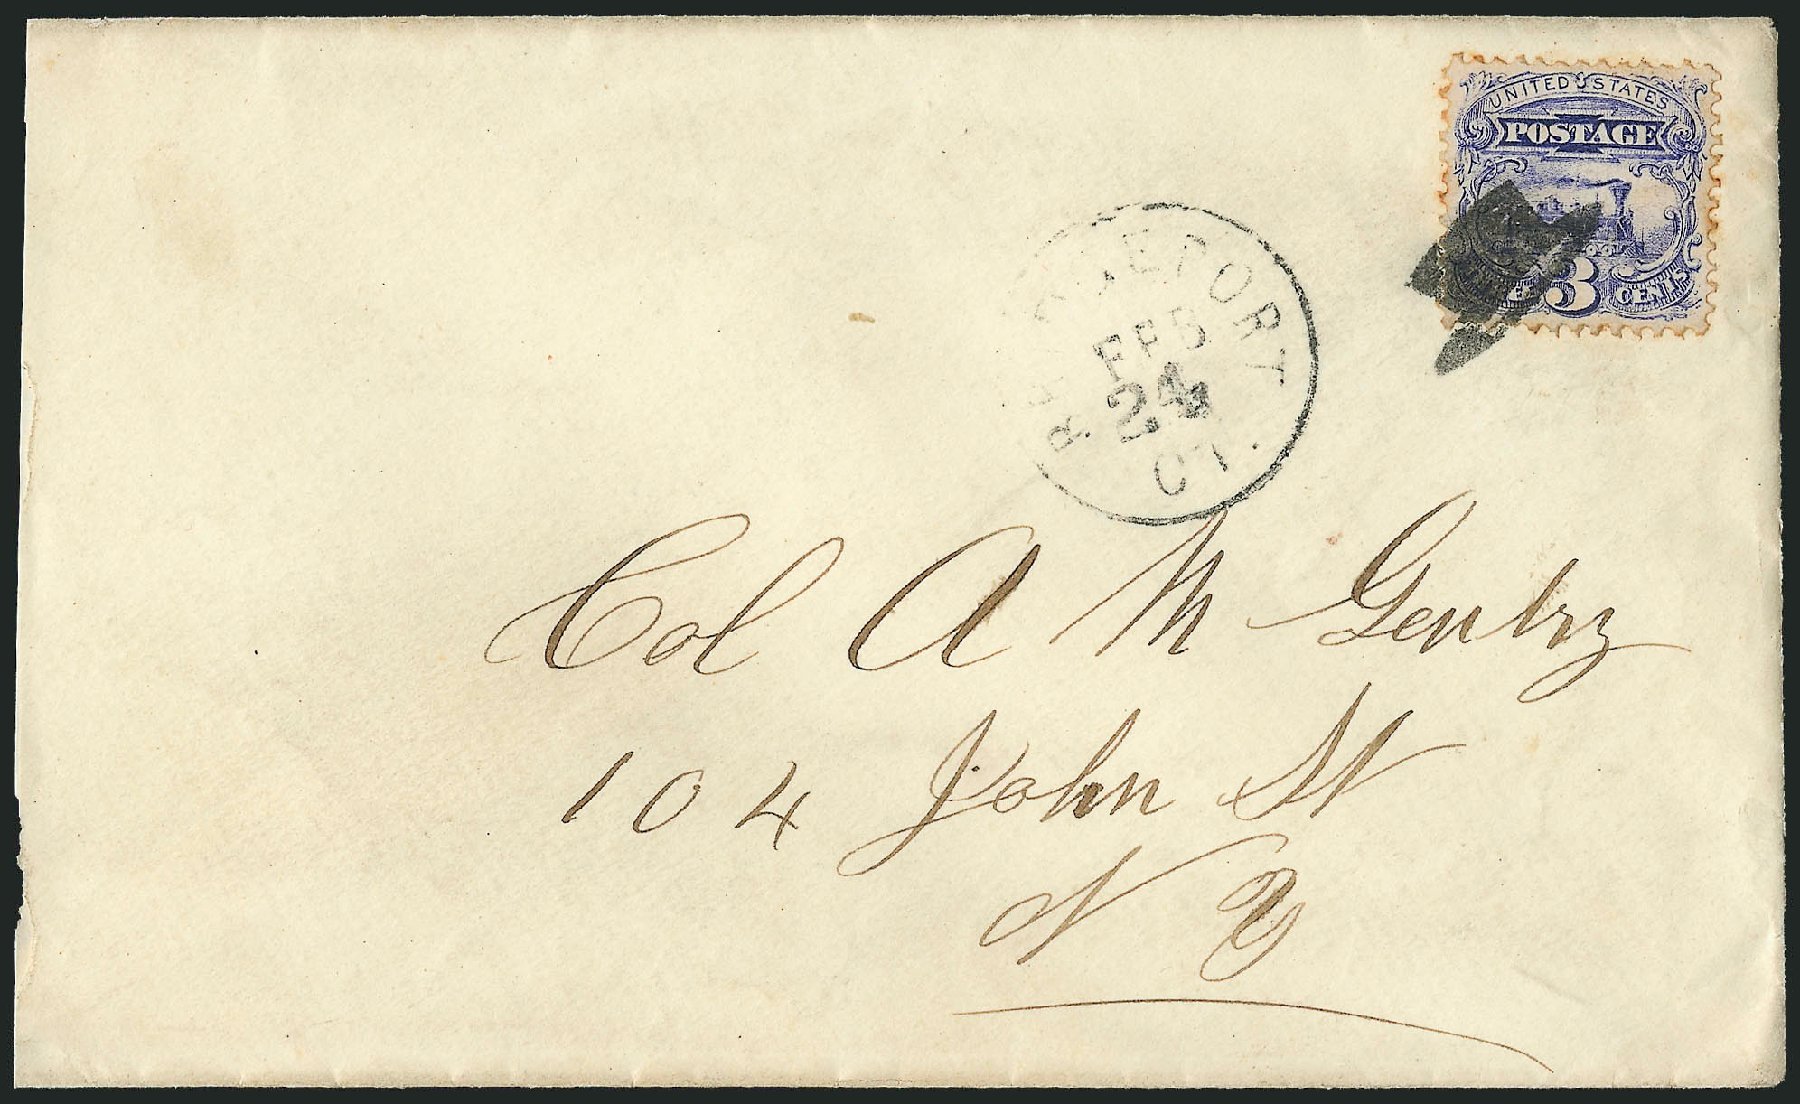 UNITED STATES
POSTAGE
3 CENTS
FEB
24
CT.
Col A M Gentry
104 John St
N Y